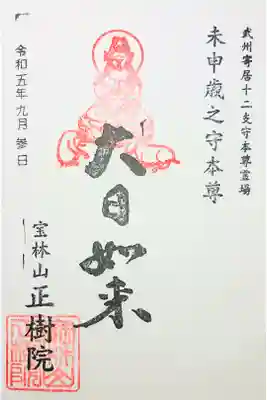 武州寄居十二支守本尊霊場
未申歳之守本尊
大日如来
宝林山 正樹院
令和五年九月参日